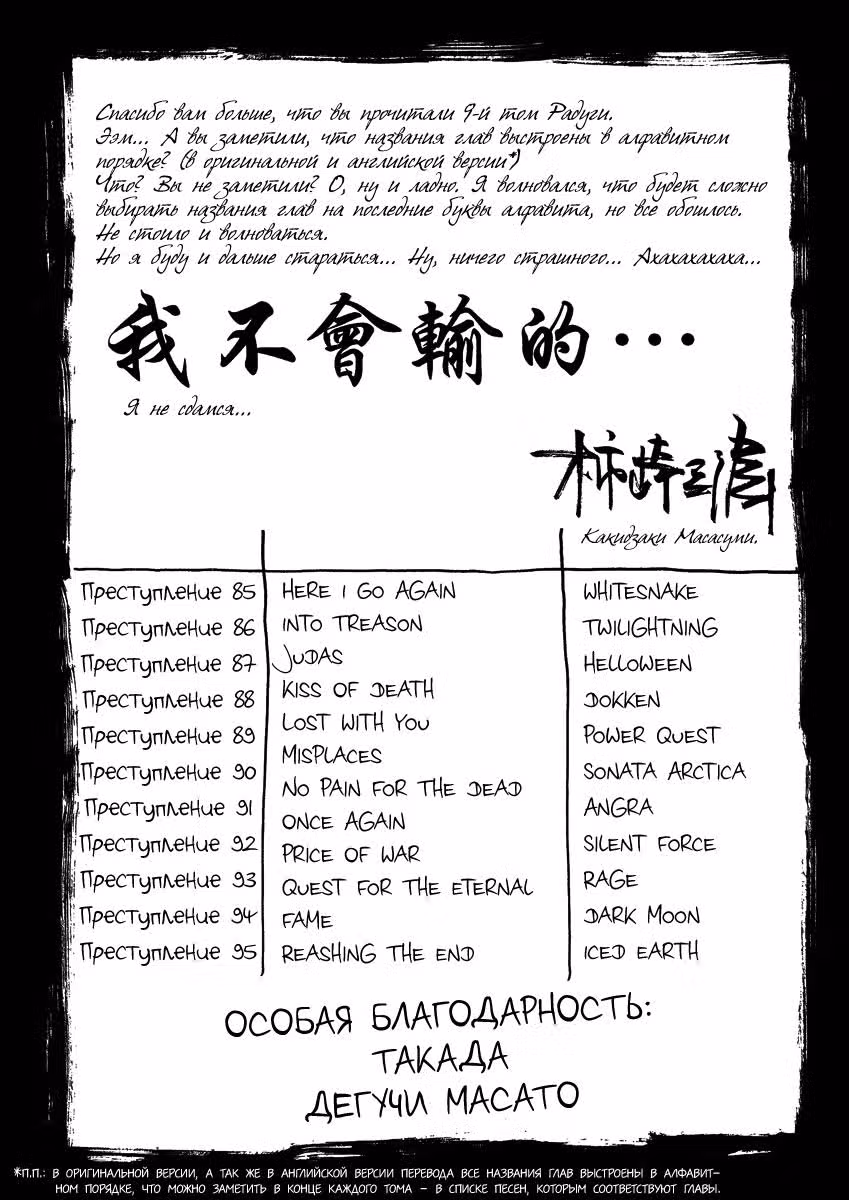 Спасибо вам больше, что вы прочитали 9-й том Радуги.
Ээм... А вы заметили, что названия глав выстроены в алфавитном
порядке? (в оригинальной и английской версии*)
Что? Вы не заметили? О, ну и ладно. Я волновался, что будет сложно
выбирать названия глав на последние буквы алфавита, но все обошлось.
Не стоило и волноваться.
Но я буду и дальше стараться... Ну, ничего страшного... Ахахахахаха...
我不會輸的...
Я не сдамся...
Какидзаки Масасуми.
Преступление 85 HERE I GO AGAIN WHITESNAKE
Преступление 86 INTO TREASON TWILIGHTNING
Преступление 87 JUDAS HELLOWEEN
Преступление 88 KISS OF DEATH DOKKEN
Преступление 89 LOST WITH YOU POWER QUEST
Преступление 90 MISPLACES SONATA ARCTICA
Преступление 91 NO PAIN FOR THE DEAD ANGRA
Преступление 92 ONCE AGAIN SILENT FORCE
Преступление 93 PRICE OF WAR RAGE
Преступление 94 QUEST FOR THE ETERNAL DARK MOON
FAME
Преступление 95 REASHING THE END ICED EARTH
ОСОБАЯ БЛАГОДАРНОСТЬ:
ТАКАДА
ДЕГУЧИ МАСАТО
*П.П.: В ОРИГИНАЛЬНОЙ ВЕРСИИ, А ТАК ЖЕ В АНГЛИЙСКОЙ ВЕРСИИ ПЕРЕВОДА ВСЕ НАЗВАНИЯ ГЛАВ ВЫСТРОЕНЫ В АЛФАВИТ-
НОМ ПОРЯДКЕ, ЧТО МОЖНО ЗАМЕТИТЬ В КОНЦЕ КАЖДОГО ТОМА - В СПИСКЕ ПЕСЕН, КОТОРЫМ СООТВЕТСТВУЮТ ГЛАВЫ.